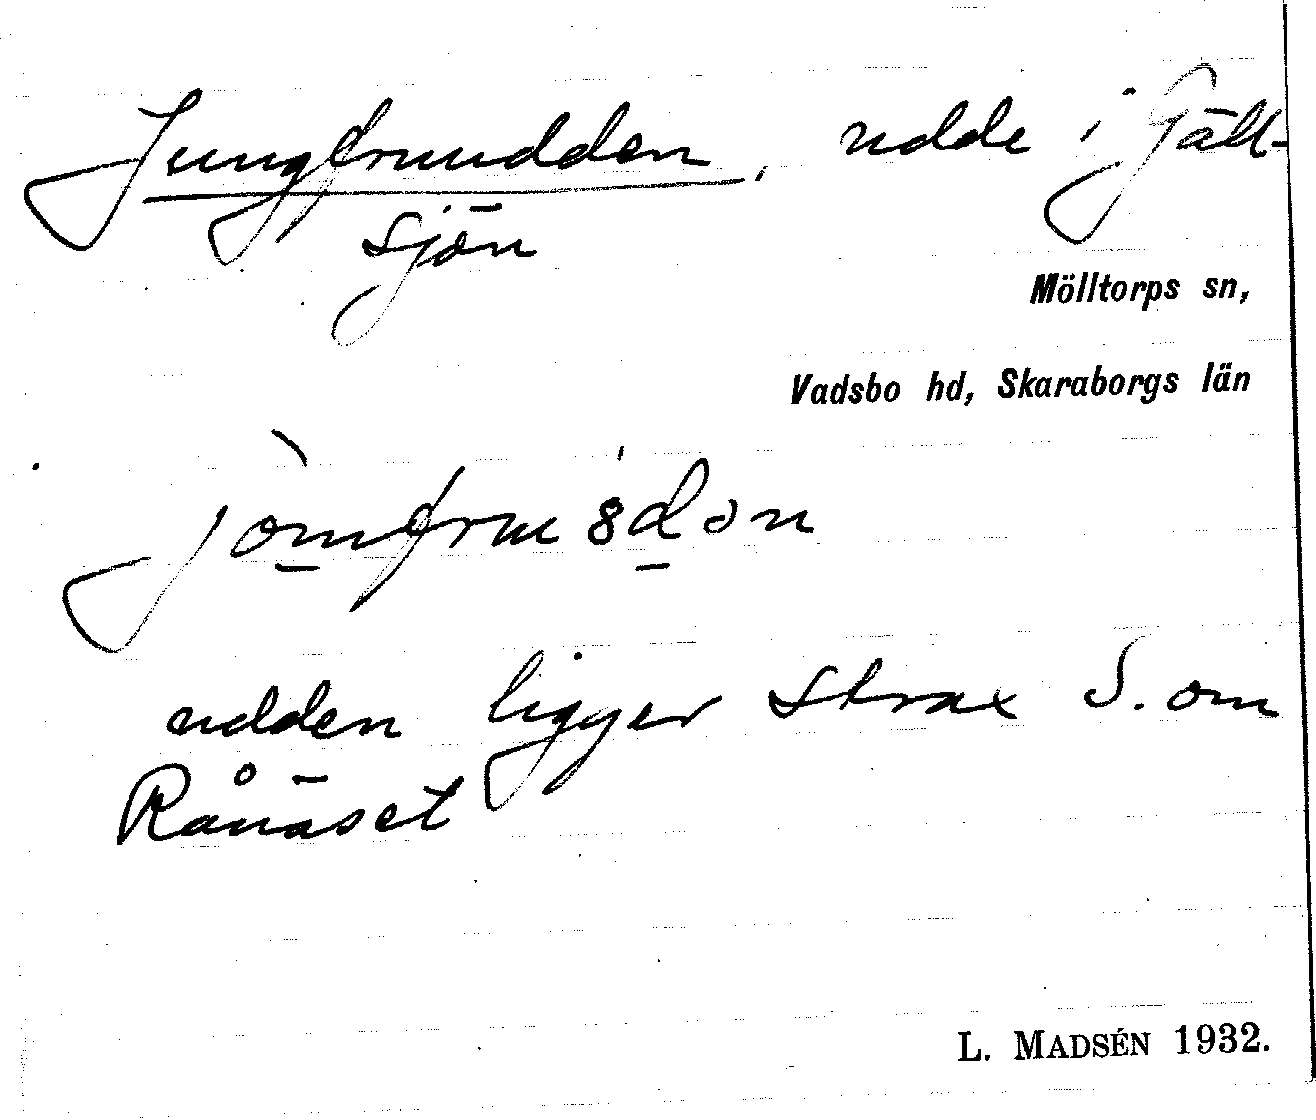 Jungfruudden, udde i Gält-
sjön
Mölltorps sn,
Vadsbo hd, Skaraborgs län
udden ligger strax S. om
Rånäset
L. MADSÉN 1932.